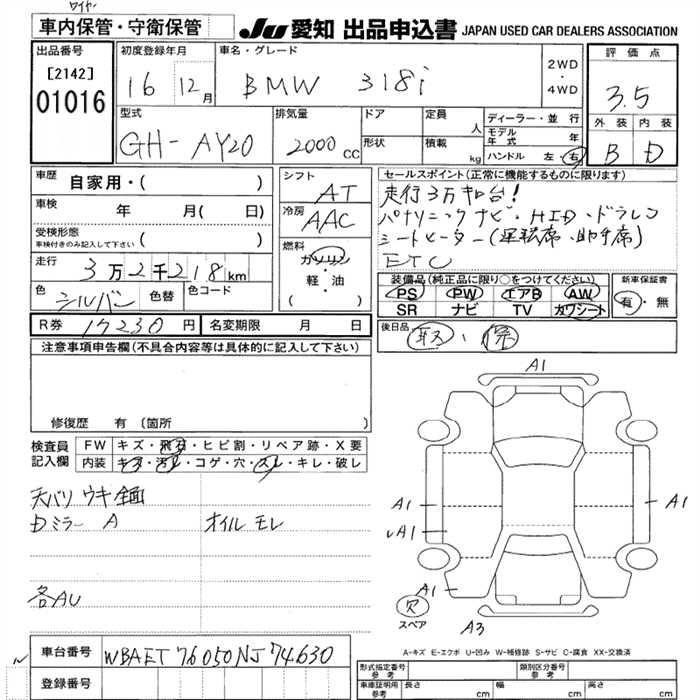 ワイヤー
車内保管・守衛保管
JU 愛知 出品申込書 JAPAN USED CAR DEALERS ASSOCIATION
出品番号
[2142]
01016
初度登録年月
16 12月
車名・グレード
BMW 318i
2WD
・
4WD
評価点
3.5
外装 内装
B D
型式
GH-AY20
排気量
2000 CC
ドア
形状
定員 人
積載 kg
ディーラー・並行
モデル年式 年
ハンドル 左・右
車歴 自家用・( )
車検 年 月( 日)
受検形態
車検付きのみ記入して下さい ( )
走行 3万2千218km
色 シルバー 色替 色コード
R券 17230円 名変期限 月 日
シフト
AT
冷房
AAC
燃料
ガソリン
・
軽・油
( )
セールスポイント(正常に機能するものに限ります)
走行3万キロ台!
パナソニックナビ・HID・ドラレコ
シートヒーター(運転席、助手席)
ETC
装備品(純正品に限り○をつけてください)
PS PW エアB AW
SR ナビ TV カワシート
新車保証書
有・無
後日品
取 保
注意事項申告欄(不具合内容等は具体的に記入して下さい)
修復歴 有(箇所 )
検査員
記入欄
FW キズ・飛石・ヒビ割・リペア跡・X要
内装 キズ・汚れ・コゲ・穴・スレ・キレ・破レ
天バリ ウキ 全面
Dミラー A オイル モレ
各AU
A1
A1
A1
A1
A1
穴
スペア
A3
A-キズ E-エクボ U-凹み W-補修跡 S-サビ C-腐食 XX-交換済
車台番号 WBAET76050NJ74630
登録番号
形式指定番号
参考
類別区分番号
参考
車庫証明用
参考
長さ cm 幅 cm 高さ cm